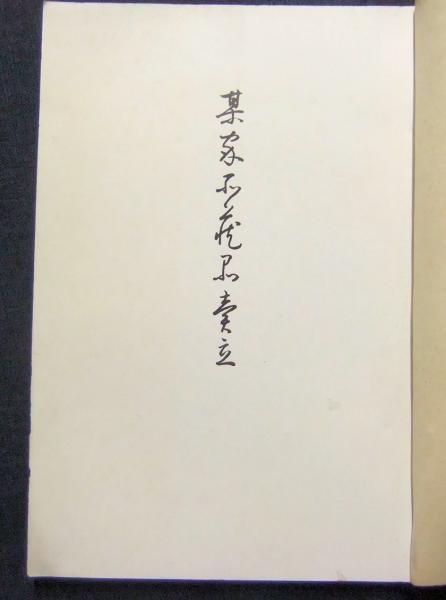 某家所蔵品売立